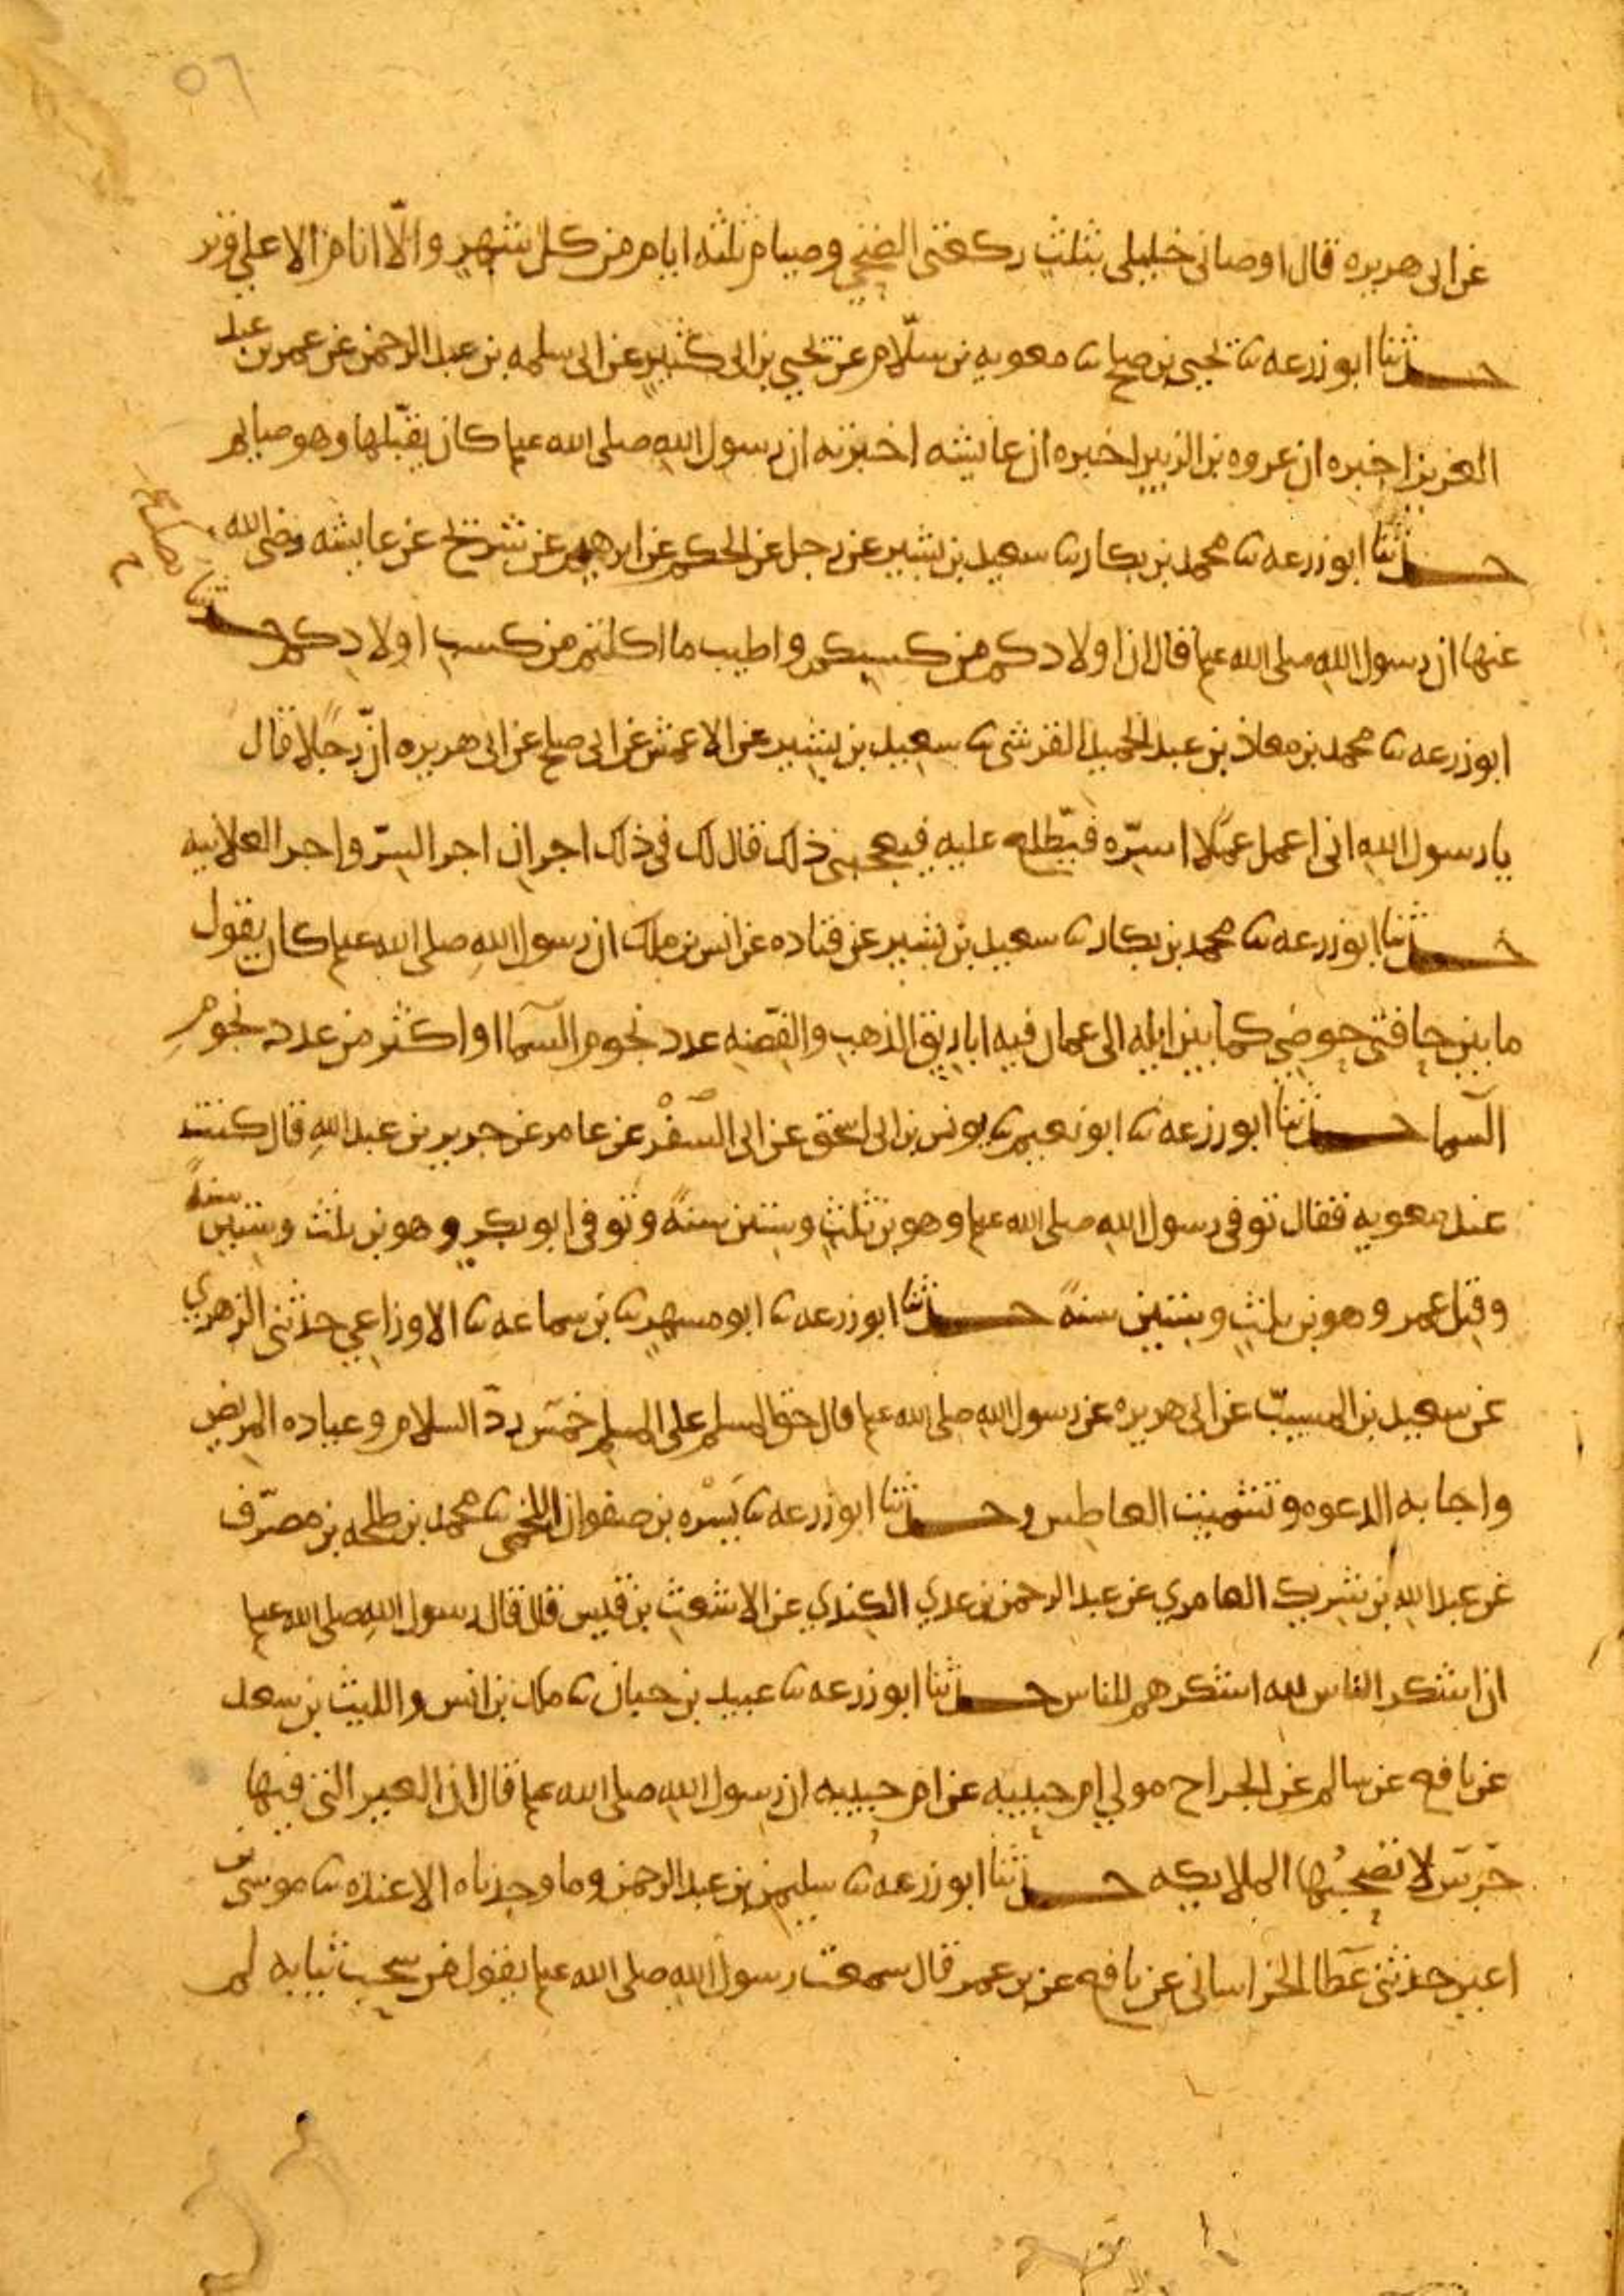 ٥٦
عن ابى هريره قال اوصانى خليلى بثلث ركعتى الضحى وصيام ثلثه ايام من كل شهر والا انام الا على وتر
حدثنا ابو زرعه نا يحيى بن صلح نا معويه بن سلّام عن يحيى بن ابى كثير عن ابى سلمه بن عبد الرحمن عن عمر بن عبد
العزيز اخبره ان عروه بن الزبير اخبره ان عايشه اخبرته ان رسول الله صلى الله علم كان يقبّلها وهو صايم
حدثنا ابو زرعه نا محمد بن بكار نا سعيد بن بشير عن رجل عن الحكم عن ابرهيم عن شريح عن عايشه رضى الله
عنها ان رسول الله صلى الله علم قال ان اولادكم من كسبكم واطيب ما اكلتم من كسب اولادكم حدثنا
ابو زرعه نا محمد بن معاذ بن عبد الحميد القرشى نا سعيد بن بشير عن الاعمش عن ابى صلح عن ابى هريره انّ رجلًا قال
يا رسول الله انى اعمل عملًا اسرّه فيطّلع عليه فيعجبنى ذلك قال لك فى ذلك اجران اجر السرّ واجر العلانيه
حدثنا ابو زرعه نا محمد بن بكار نا سعيد بن بشير عن قتاده عن انس بن ملك ان رسول الله صلى الله علم كان يقول
ما بين حافتى حوضى كما بين ايله الى عمان فيه اباريق الذهب والفضه عدد نجوم السما او اكثر من عدد نجوم
السما حدثنا ابو زرعه نا ابو نعيم نا يونس بن ابى اسحق عن ابى السفْر عن عامر عن جرير بن عبد الله قال كنت
عند معويه فقال توفى رسول الله صلى الله علم وهو بن ثلث وستين سنةً وتوفى ابو بكر وهو بن ثلث وستين سنةً
وقتل عمر وهو بن ثلث وستين سنةً حدثنا ابو زرعه نا ابو مسهر نا بن سماعه نا الاوزاعي حدثنى الزهري
عن سعيد بن المسيّب عن ابى هريره عن رسول الله صلى الله علم قال حق المسلم على المسلم خمسٌ ردّ السلام وعياده المريض
واجابه الدعوه وتشميت العاطس وحدثنا ابو زرعه نا يَسْره بن صفوان اللخمى نا محمد بن طلحه بن مصرّف
عن عبد الله بن شريك العامري عن عبد الرحمن بن عدي الكندي عن الاشعث بن قيس قال قال رسول الله صلى الله علم
ان اشكر الناس لله اشكرهم للناس حدثنا ابو زرعه نا عبيد بن حبان نا ملك بن انس والليث بن سعد
عن نافع عن سالم عن الجراح مولي ام حبيبه عن ام حبيبه ان رسول الله صلى الله علم قال ان العير التى فيها
جَرَس لا تصحبُها الملايكه حدثنا ابو زرعه نا سليمن بن عبد الرحمن وما وجدناه الا عنده نا موسى بن
اعين حدثنى عطا الخراسانى عن نافع عن بن عمر قال سمعت رسول الله صلى الله علم يقول من سحب ثيابه لم